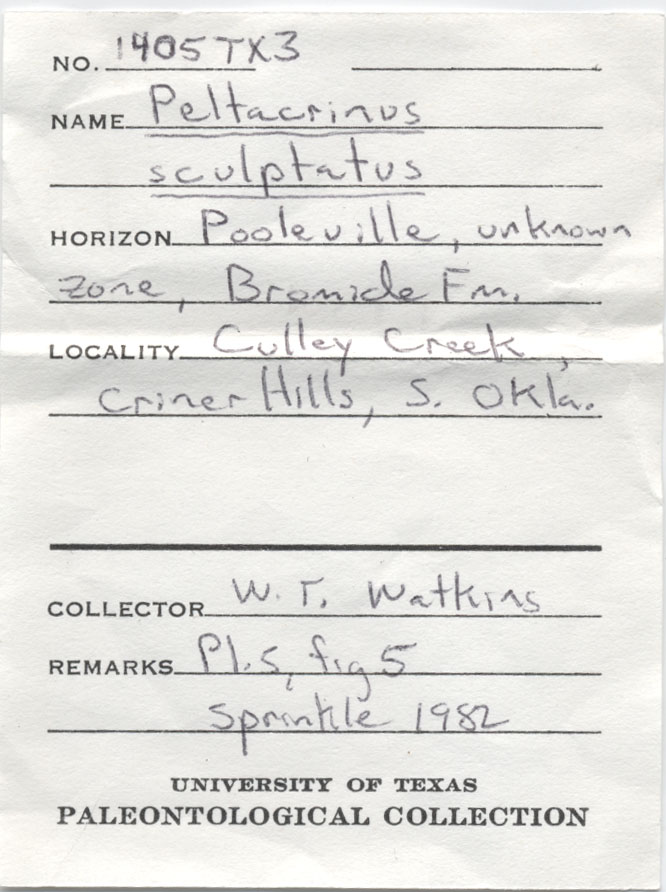 NO. 1405TX3
NAME Peltacrinus
sculptatus
HORIZON Pooleville, unknown
zone, Bromide Fm.
LOCALITY Culley Creek,
Criner Hills, S. Okla.
COLLECTOR W. T. Watkins
REMARKS Pl. 5, fig 5
Sprinkle 1982
UNIVERSITY OF TEXAS
PALEONTOLOGICAL COLLECTION